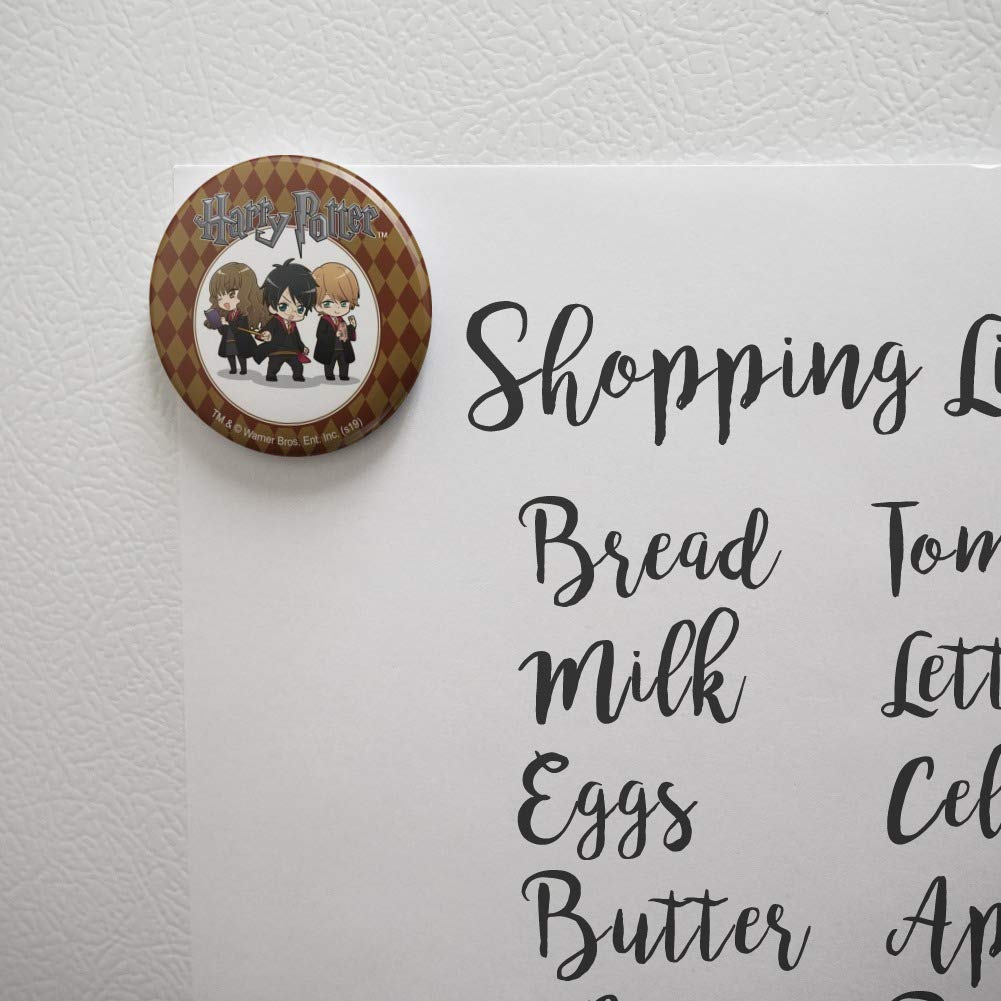 Harry Potter™
TM & © Warner Bros. Ent. Inc. (s19)
Shopping Li
Bread Tom
Milk Lett
Eggs Cel
Butter Ap